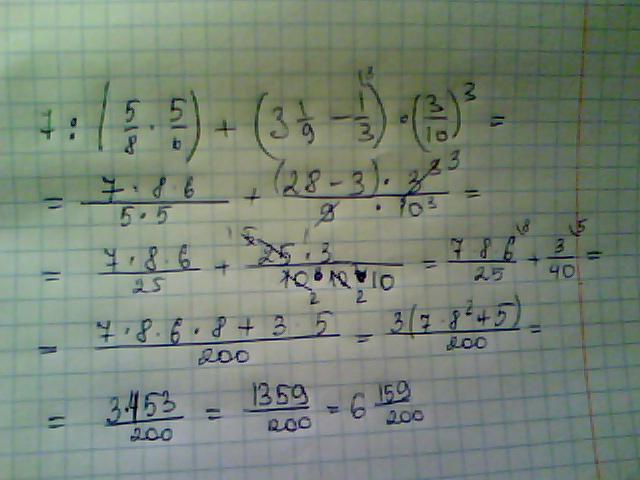 7 : (5/8 · 5/6) + (3 1/9 - 1/3) · (3/10)^3 =
= 7·8·6/5·5 + (28-3)·3^3/9·10^3 =
= 7·8·6/25 + 25·3/10·10·10 = 7 8 6/25 + 3/40 =
= 7·8·6·8+3·5/200 = 3(7·8^2+5)/200 =
= 3·453/200 = 1359/200 = 6 159/200